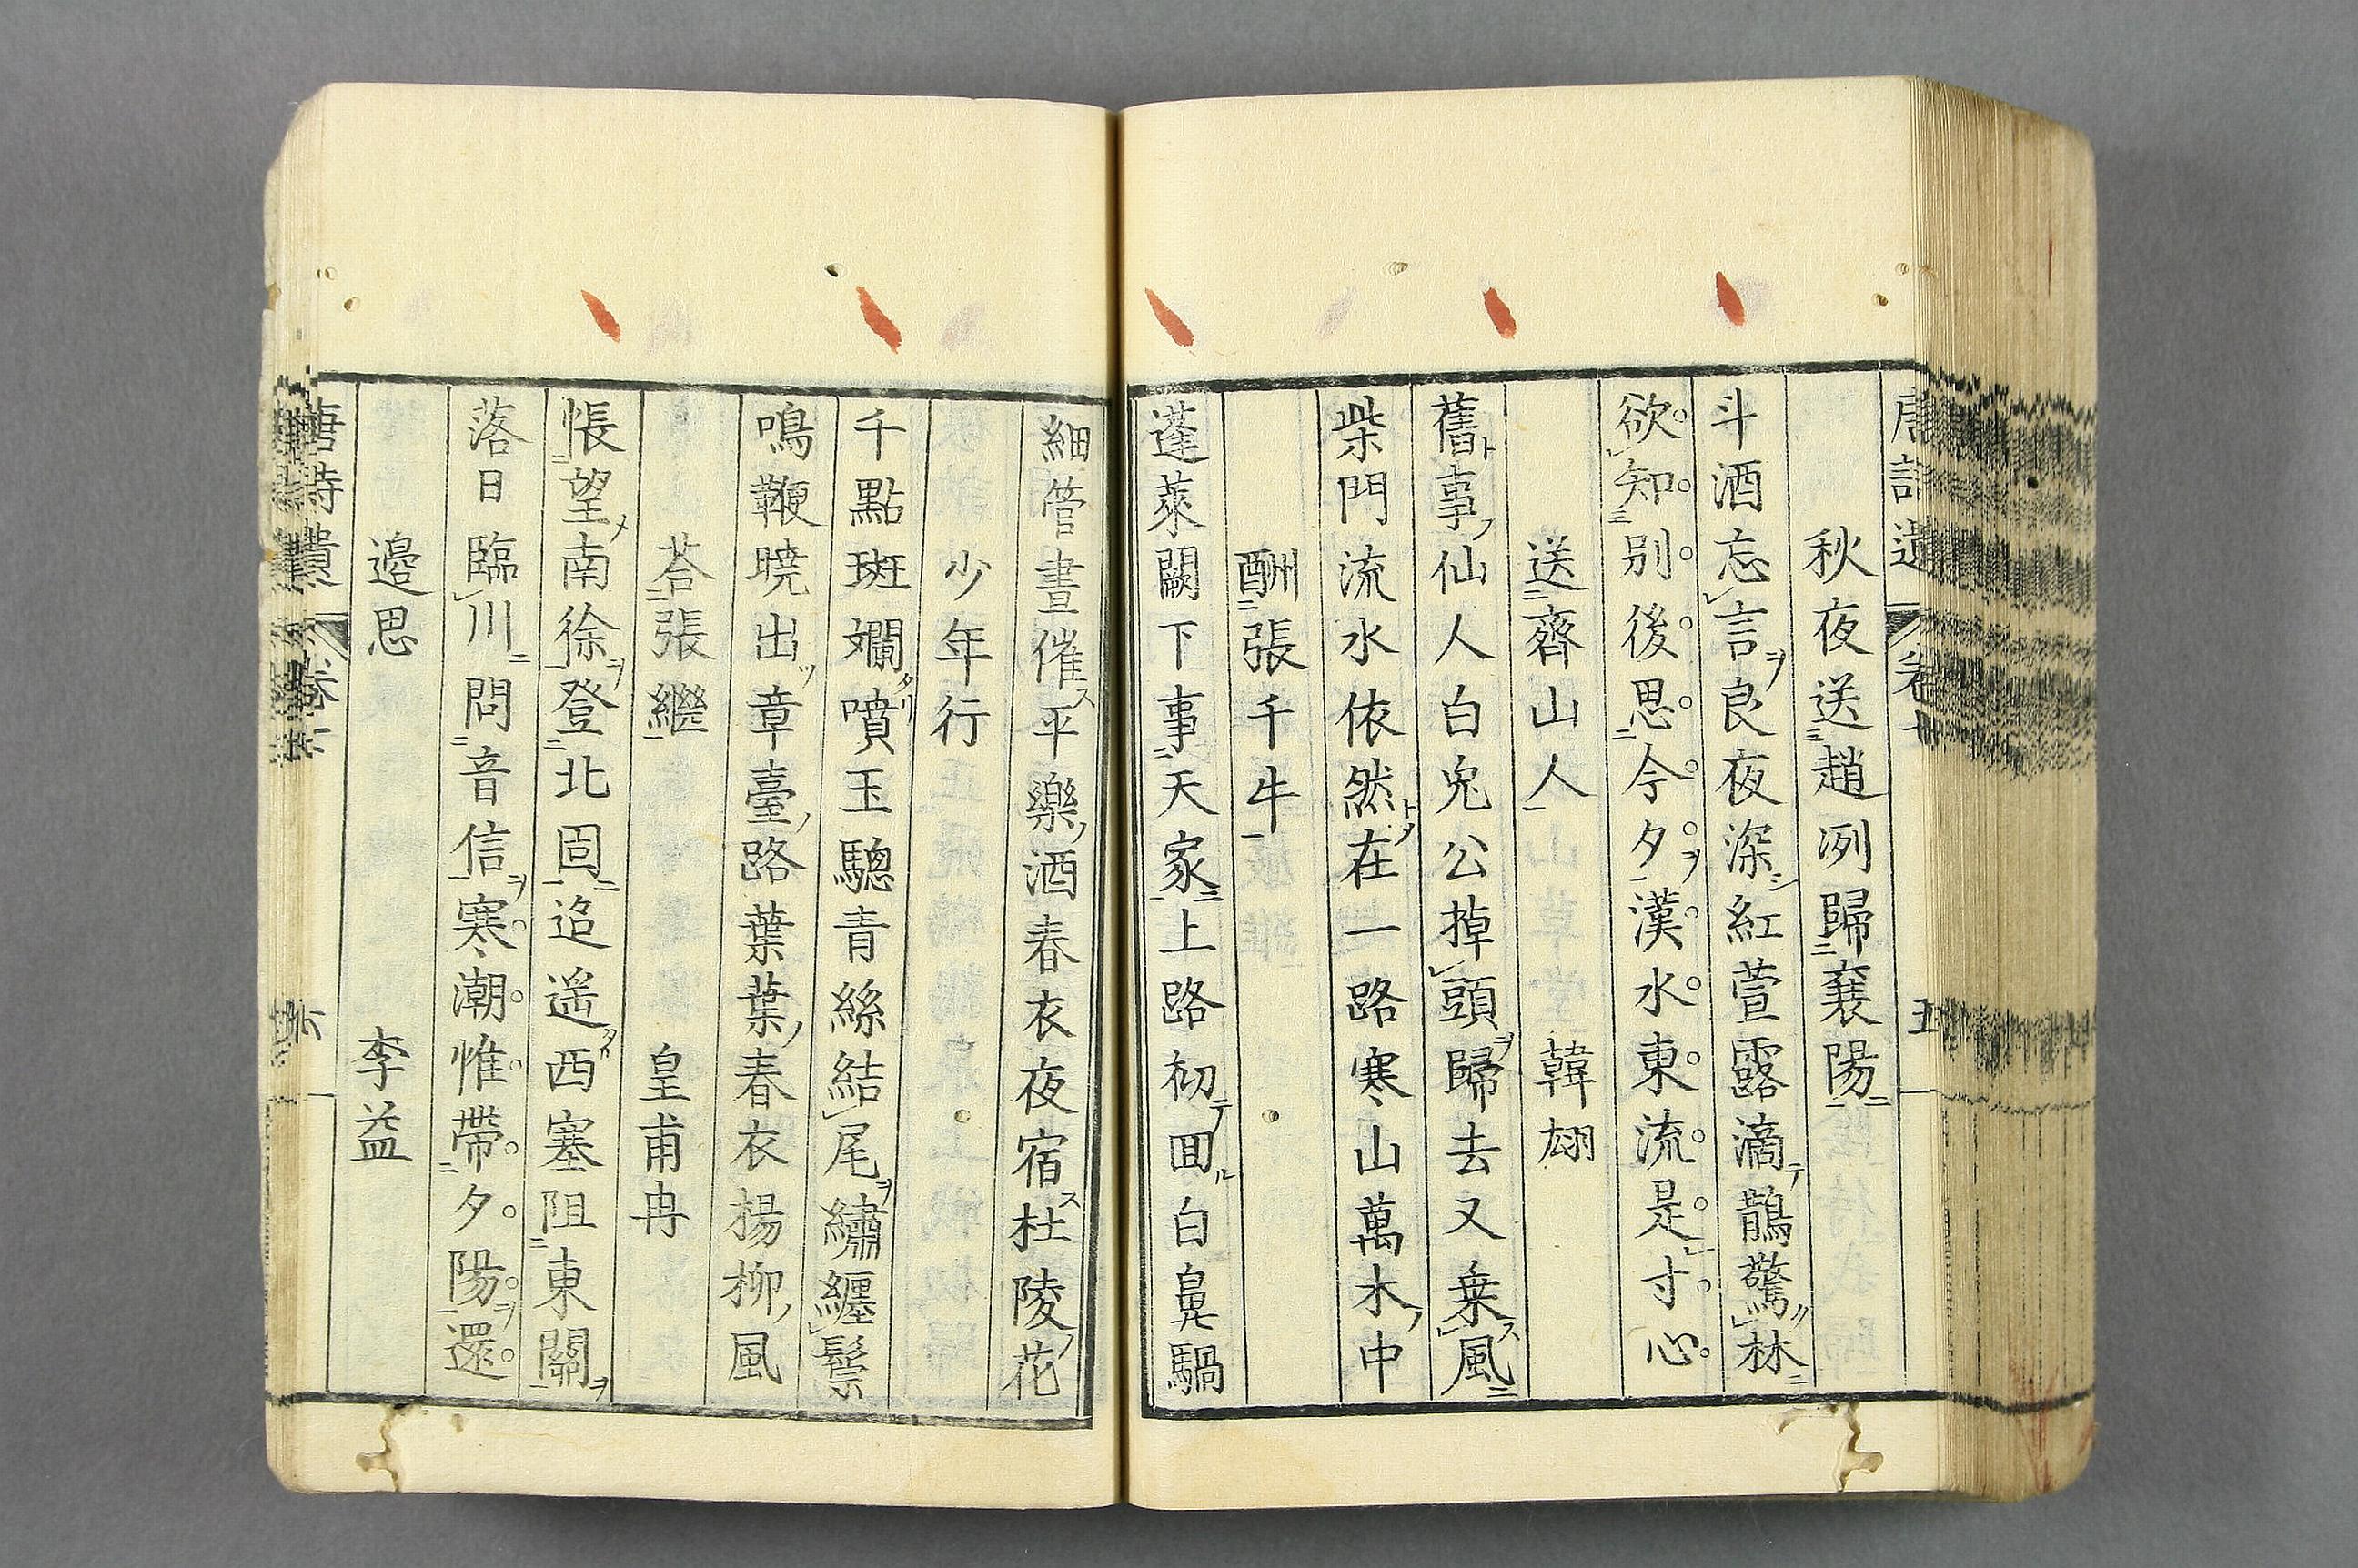 秋夜送趙冽歸襄陽
斗酒忘言良夜深紅萱露滴鵲驚林
欲知別後思今夕漢水東流是寸心
送齊山人 韓翃
舊事仙人白兔公掉頭歸去又乗風
柴門流水依然在一路寒山萬木中
酬張千牛
蓬萊闕下事天家上路初回白鼻騧
細管晝催平樂酒春衣夜宿杜陵花
少年行
千點斑斕噴玉驄青絲結尾繡纏鬃
鳴鞭曉出章臺路葉葉春衣楊柳風
荅張繼 皇甫冉
悵望南徐登北固迢遥西塞阻東關
落日臨川問音信寒潮惟帶夕陽還
邉思 李益